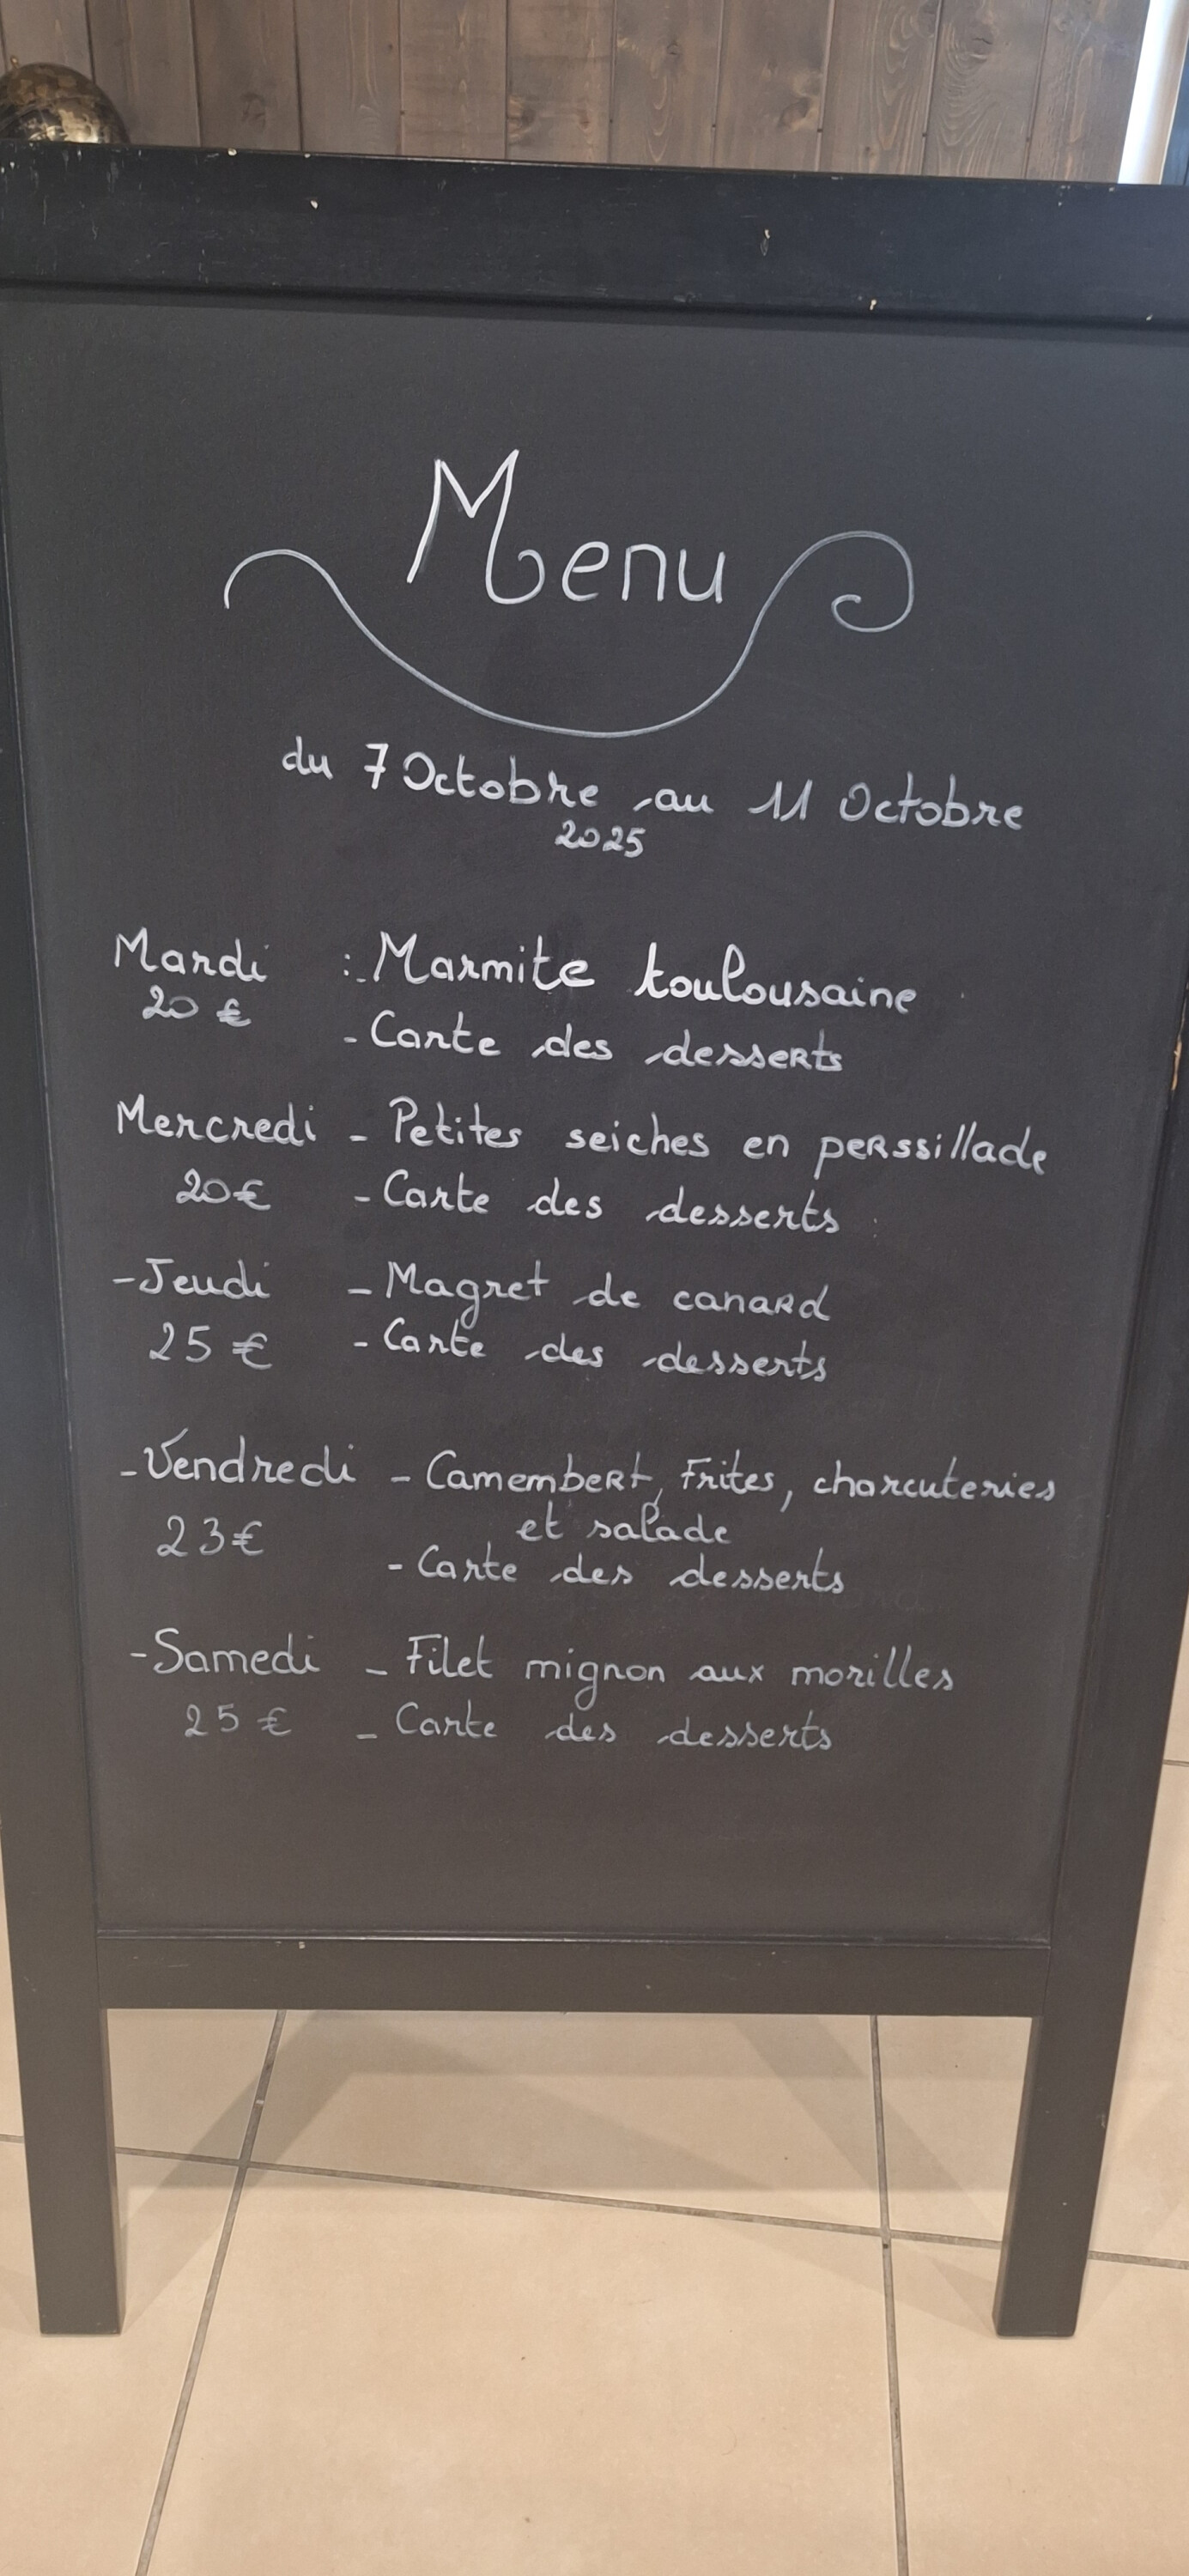 Menu
du 7 Octobre au 11 Octobre
2025
Mardi : - Marmite toulousaine
20 € - Carte des desserts
Mercredi - Petites seiches en perssillade
20€ - Carte des desserts
- Jeudi - Magret de canard
25 € - Carte des desserts
- Vendredi - Camembert, Frites, charcuteries
et salade
23€ - Carte des desserts
- Samedi - Filet mignon aux morilles
25 € - Carte des desserts